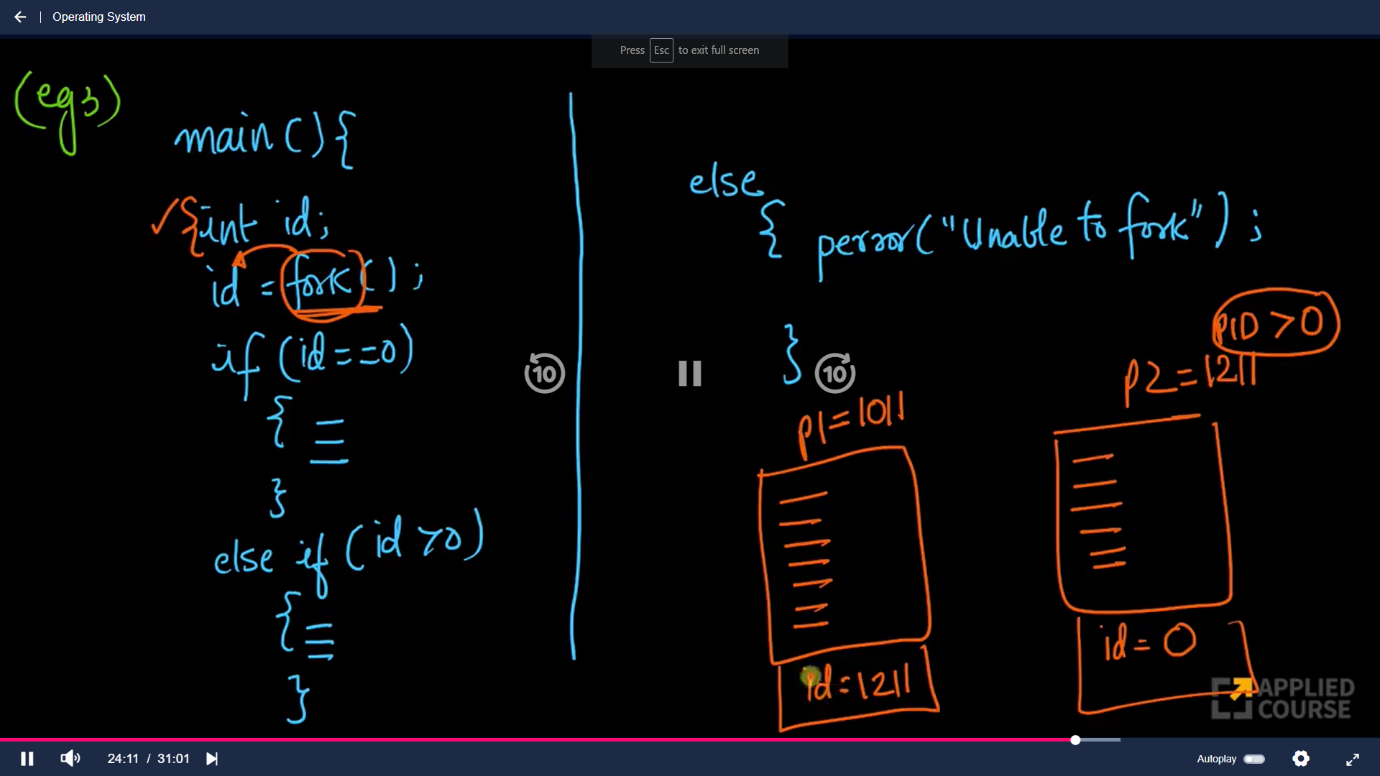 Operating System
Press Esc to exit full screen
(eg3)
main(){
{int id;
id = fork();
if (id==0)
{
}
else if (id >0)
{
}
else
{ perror("Unable to fork");
}
PID > 0
p1=1011
p2=1211
id=1211
id=0
10
10
APPLIED
COURSE
24:11 / 31:01
Autoplay